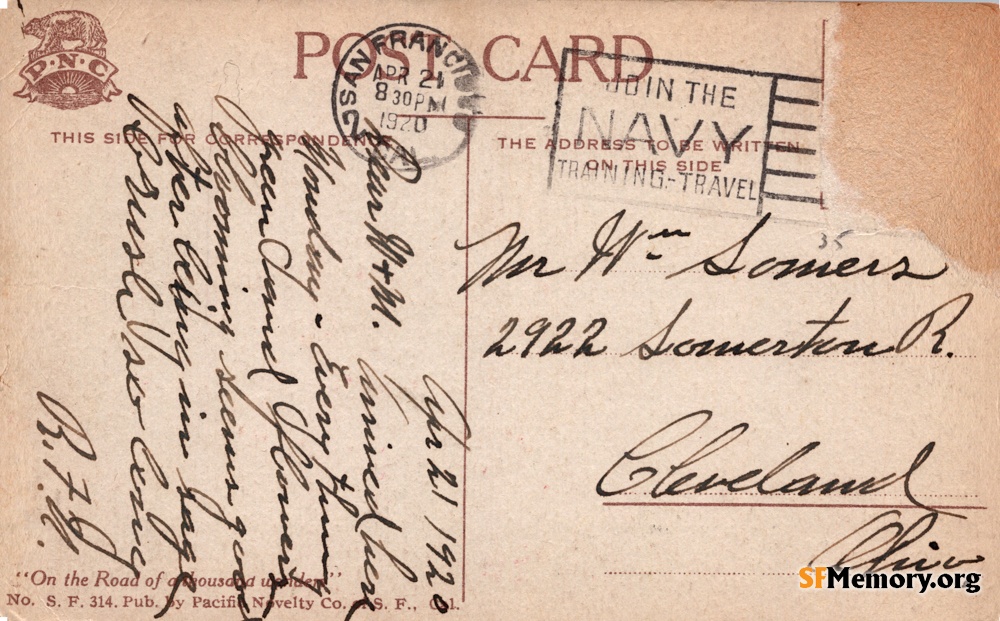 P·N·C
POST CARD
SAN FRANCISCO
APR 21
8 30 PM
1920
CAL.
JOIN THE
NAVY
TRAINING-TRAVEL
THIS SIDE FOR CORRESPONDENCE
THE ADDRESS TO BE WRITTEN
ON THIS SIDE
Apr 21 1920
Dear W & M. Arrived here
Monday - Everything
green and flowers
blooming seems good
after being in sage
brush so long
R. F. G.
35
Mr Wm Somers
2922 Somerton R.
Cleveland
Ohio
"On the Road of a thousand wonders"
No. S. F. 314. Pub. by Pacific Novelty Co., S. F., Cal.
SFMemory.org